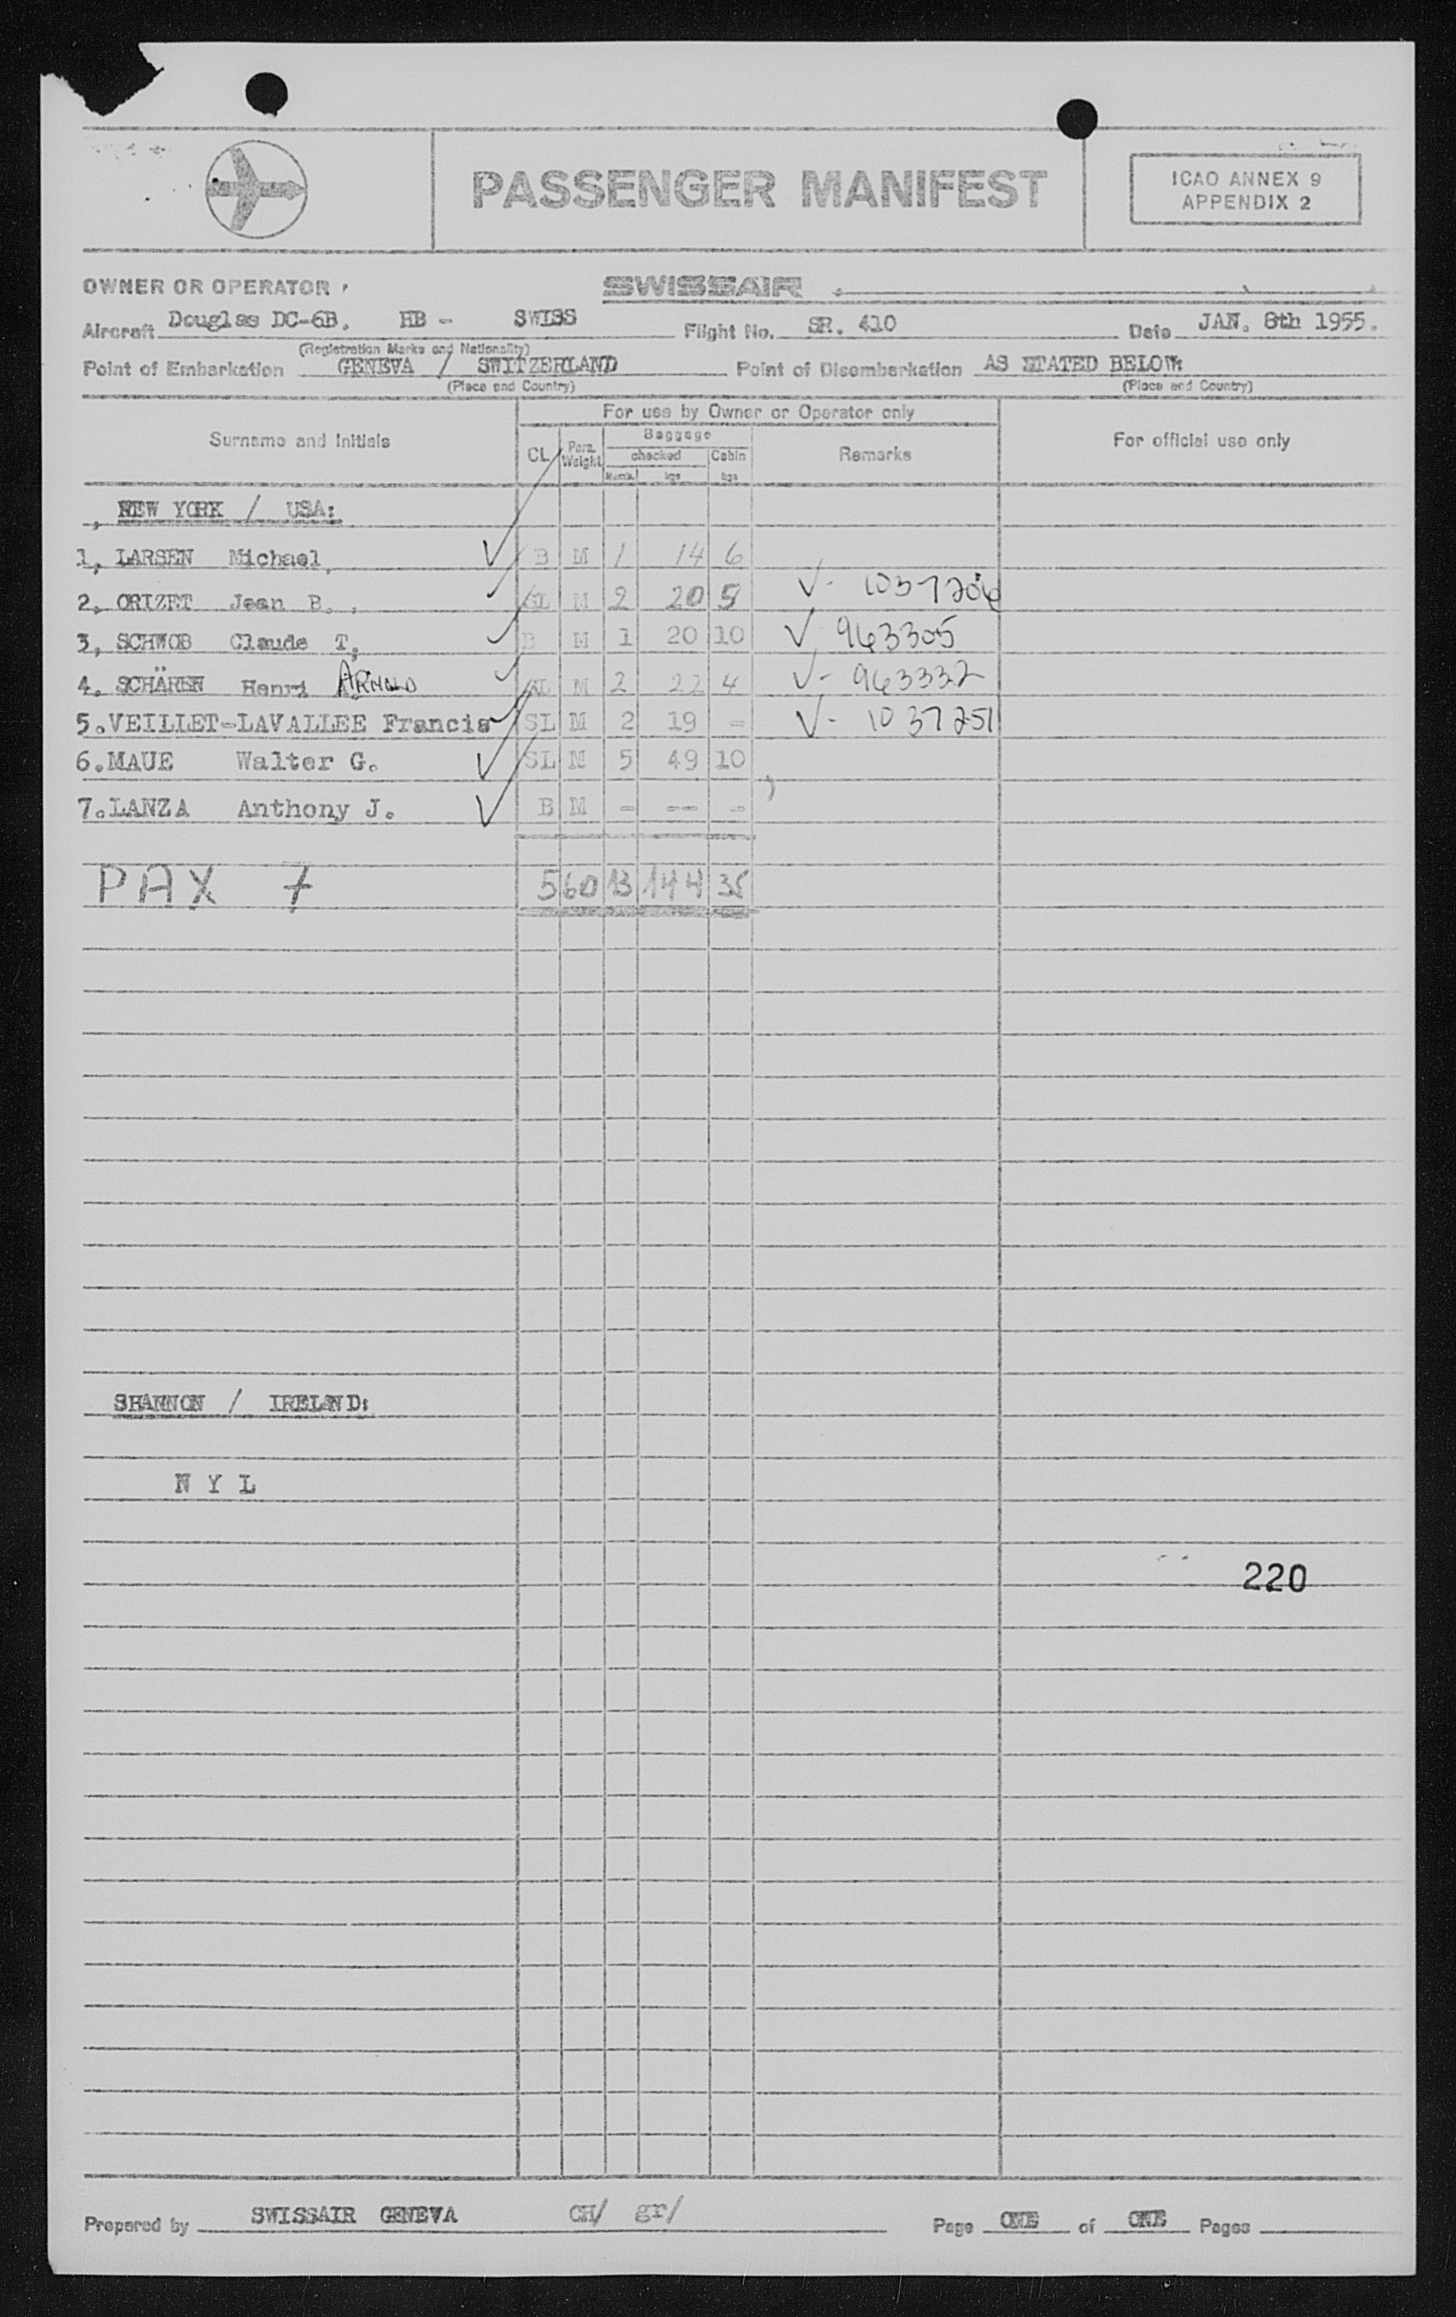 PASSENGER MANIFEST
ICAO ANNEX 9
APPENDIX 2
OWNER OR OPERATOR SWISSAIR
Aircraft Douglas DC-6B. HB - SWISS Flight No. SR. 410 Date JAN. 8th 1955.
(Registration Marks and Nationality)
Point of Embarkation GENEVA / SWITZERLAND Point of Disembarkation AS STATED BELOW
(Place and Country) (Place and Country)
For use by Owner or Operator only
Surname and Initials CL Pers. Weight Baggage Remarks For official use only
checked Cabin
Numb. kgs kgs
NEW YORK / USA:
1, LARSEN Michael, B M 1 14 6
2, ORIZET Jean B., SL M 2 20 5 V- 1037206
3, SCHWOB Claude T, B M 1 20 10 V, 963305
4. SCHÄREN Henri ARNOLD SL M 2 22 4 V- 963332
5.VEILLET-LAVALLEE Francis SL M 2 19 - V- 1037251
6.MAUE Walter G. SL M 5 49 10
7.LANZA Anthony J. B M - -- -
PAX 7 560 13 144 35
SHANNON / IRELAND:
N Y L
220
Prepared by SWISSAIR GENEVA CH/ gr/ Page ONE of ONE Pages